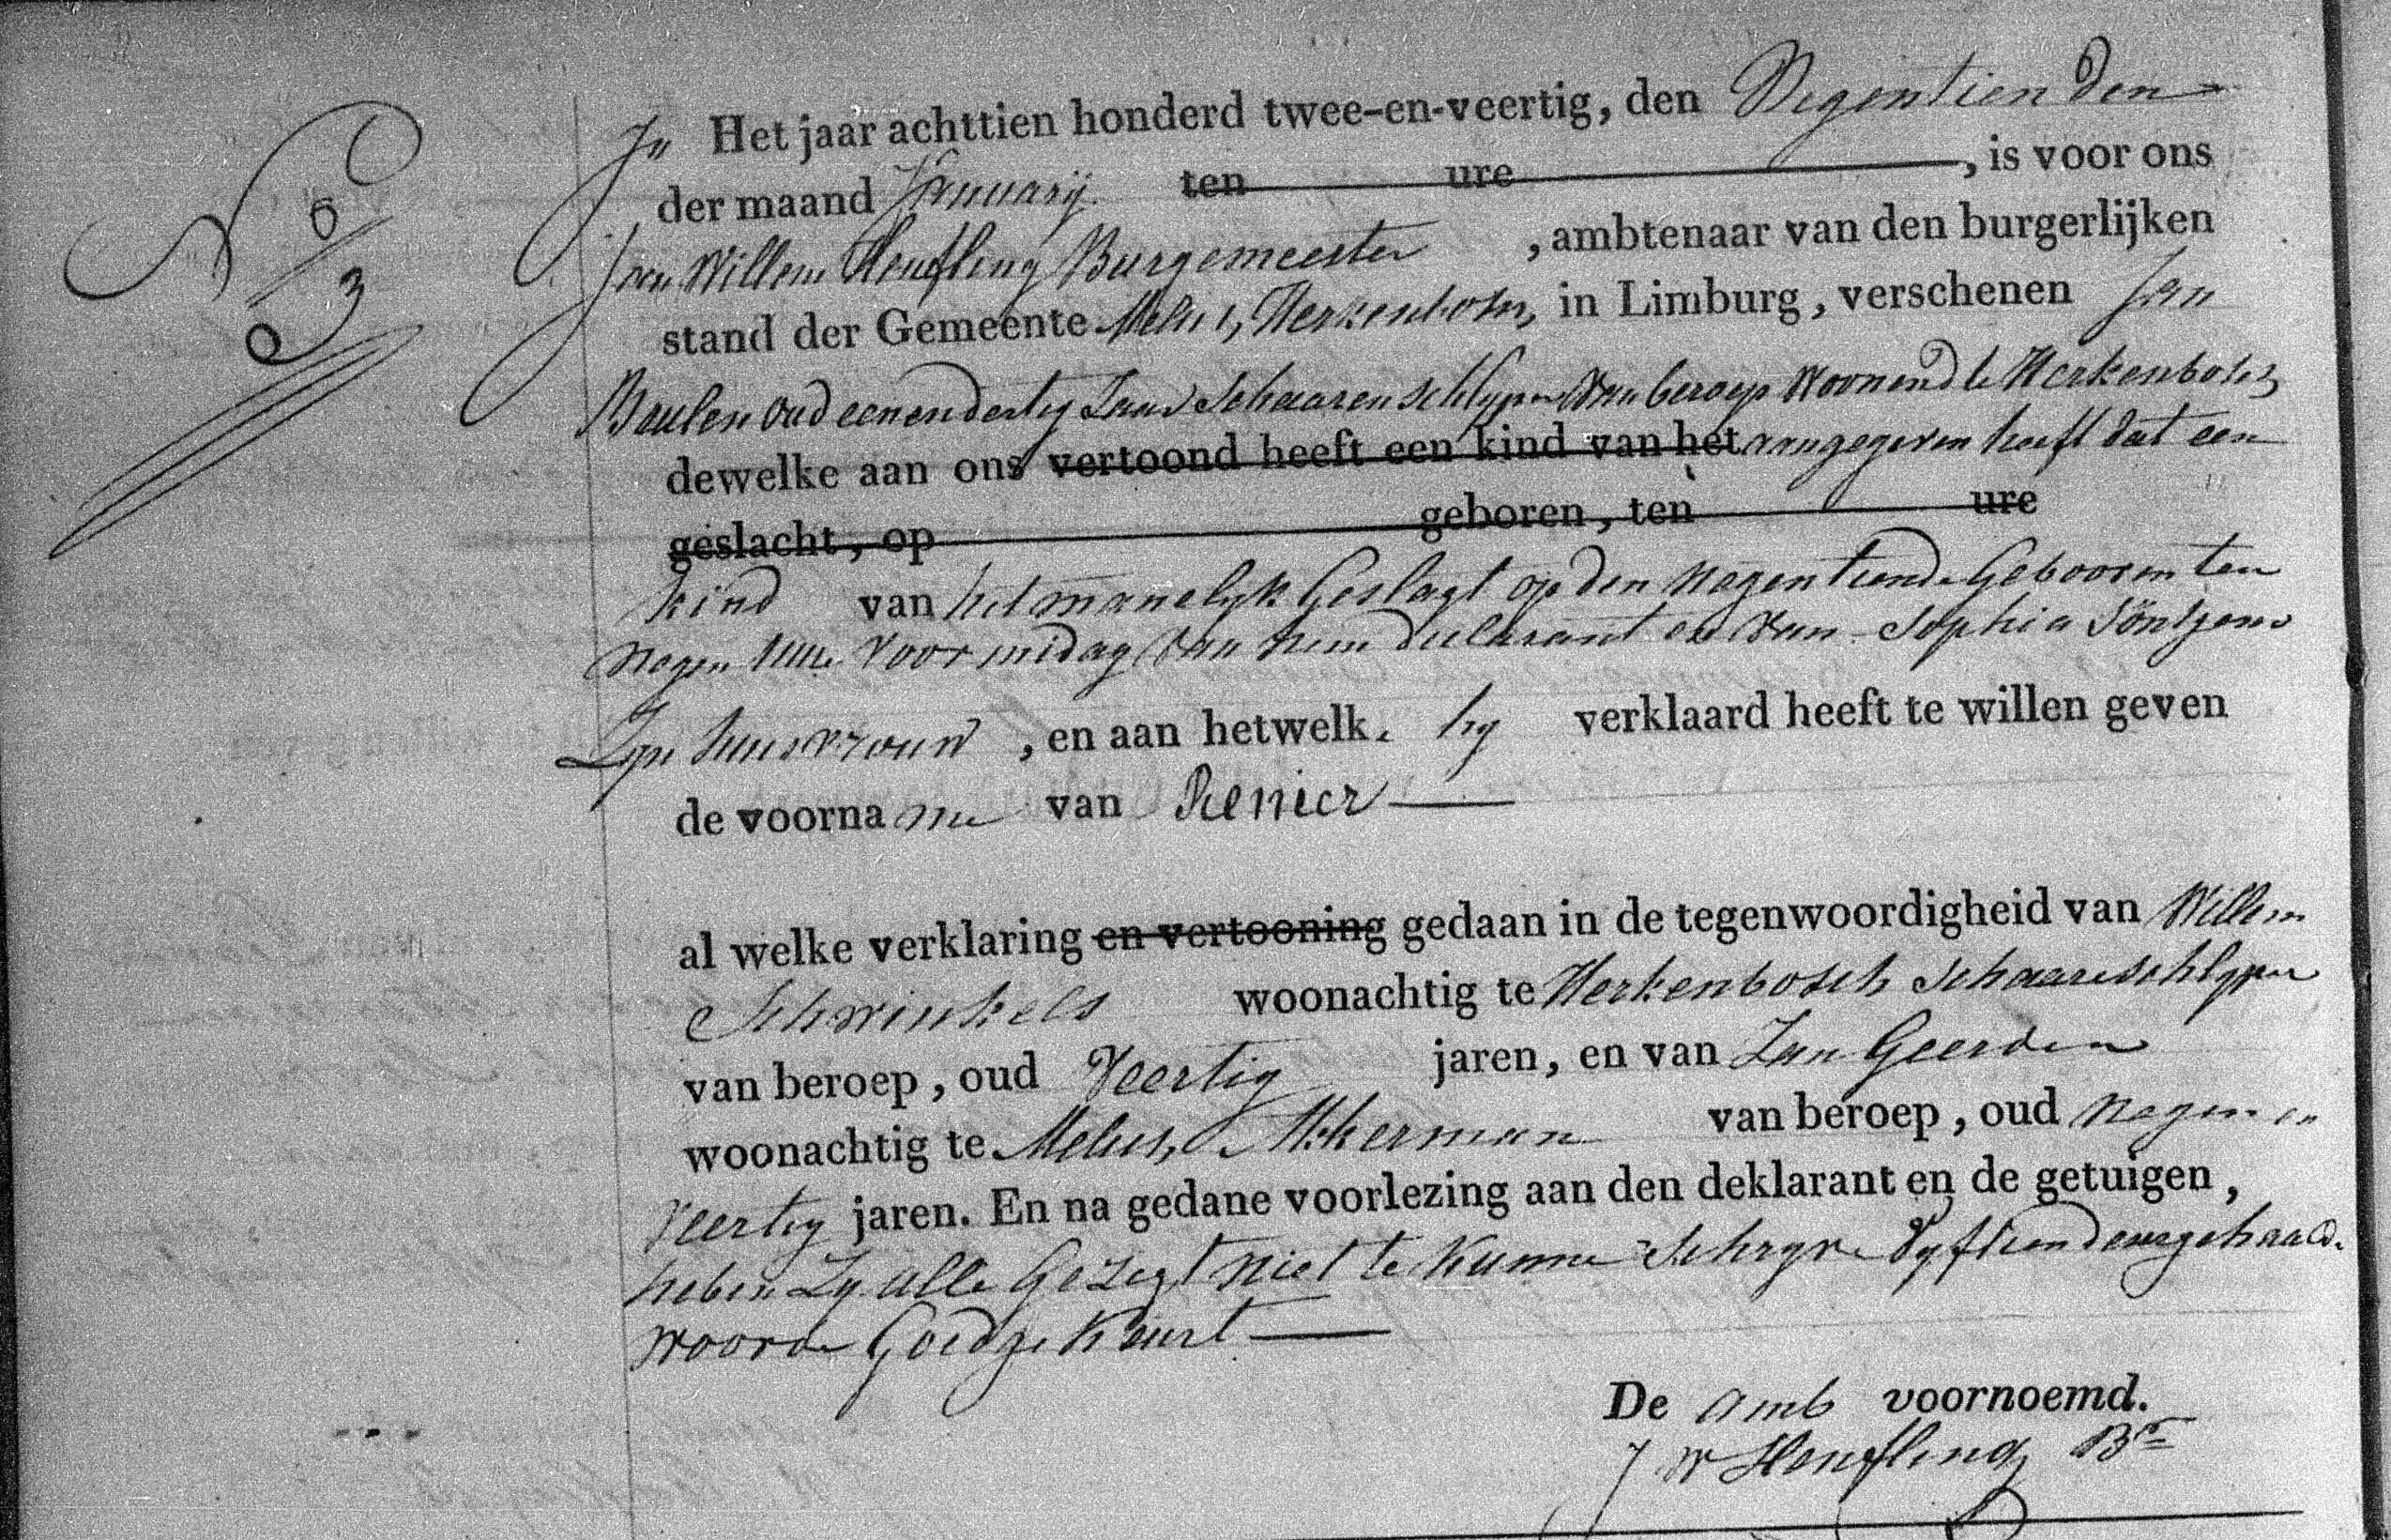 N 6/3
In Het jaar achttien honderd twee-en-veertig, den Negentienden
der maand January ten ure, is voor ons
Jan Willem Heufling Burgemeester, ambtenaar van den burgerlijken
stand der Gemeente Melick, Herkenbosch, in Limburg, verschenen Jan
Beulen oud eenendertig Jaar Schaarenschlyper van beroep Woonend te Herkenbosch
dewelke aan ons vertoond heeft een kind van het aangegeven heeft dat een
geslacht, op geboren, ten ure
kind van het manelyk Geslagt op den negentiende Gebooren ten
negen uur Voormidag van hem declarant en van Sophia Söntgens
Zyn huisvrouw, en aan hetwelk. hy verklaard heeft te willen geven
de voorname van Renier
al welke verklaring en vertooning gedaan in de tegenwoordigheid van Willem
Schwinkels woonachtig te Herkenbosch Schaareschlyper
van beroep, oud Veertig jaren, en van Jan Geerden
woonachtig te Melick, Akkerman van beroep, oud negen en
Veertig jaren. En na gedane voorlezing aan den deklarant en de getuigen,
heben Zy alle Gezegt niet te kunne Schryve Vyftien deurgehaalde
woorde Goedgekeurt
De amb voornoemd.
J W Heufling Br